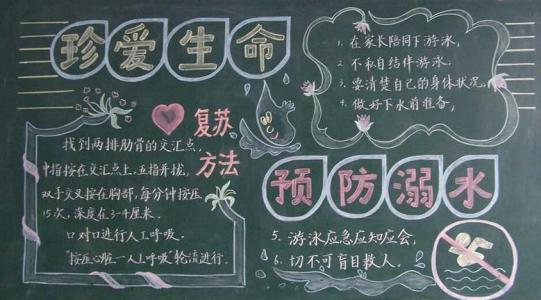 珍爱生命
1. 在家长陪同下游泳,
2. 不私自结伴游泳.
3. 要清楚自己的身体状况.
4. 做好下水前准备,
复苏
方法
找到两排肋骨的交汇点,
中指按在交汇点上,五指并拢,
双手交叉按在胸部,每分钟按压
15次,深度在3-4厘米.
口对口进行人工呼吸.
"按压心脏一人工呼吸"轮流进行.
预防溺水
5. 游泳应急应知应会,
6. 切不可盲目救人.